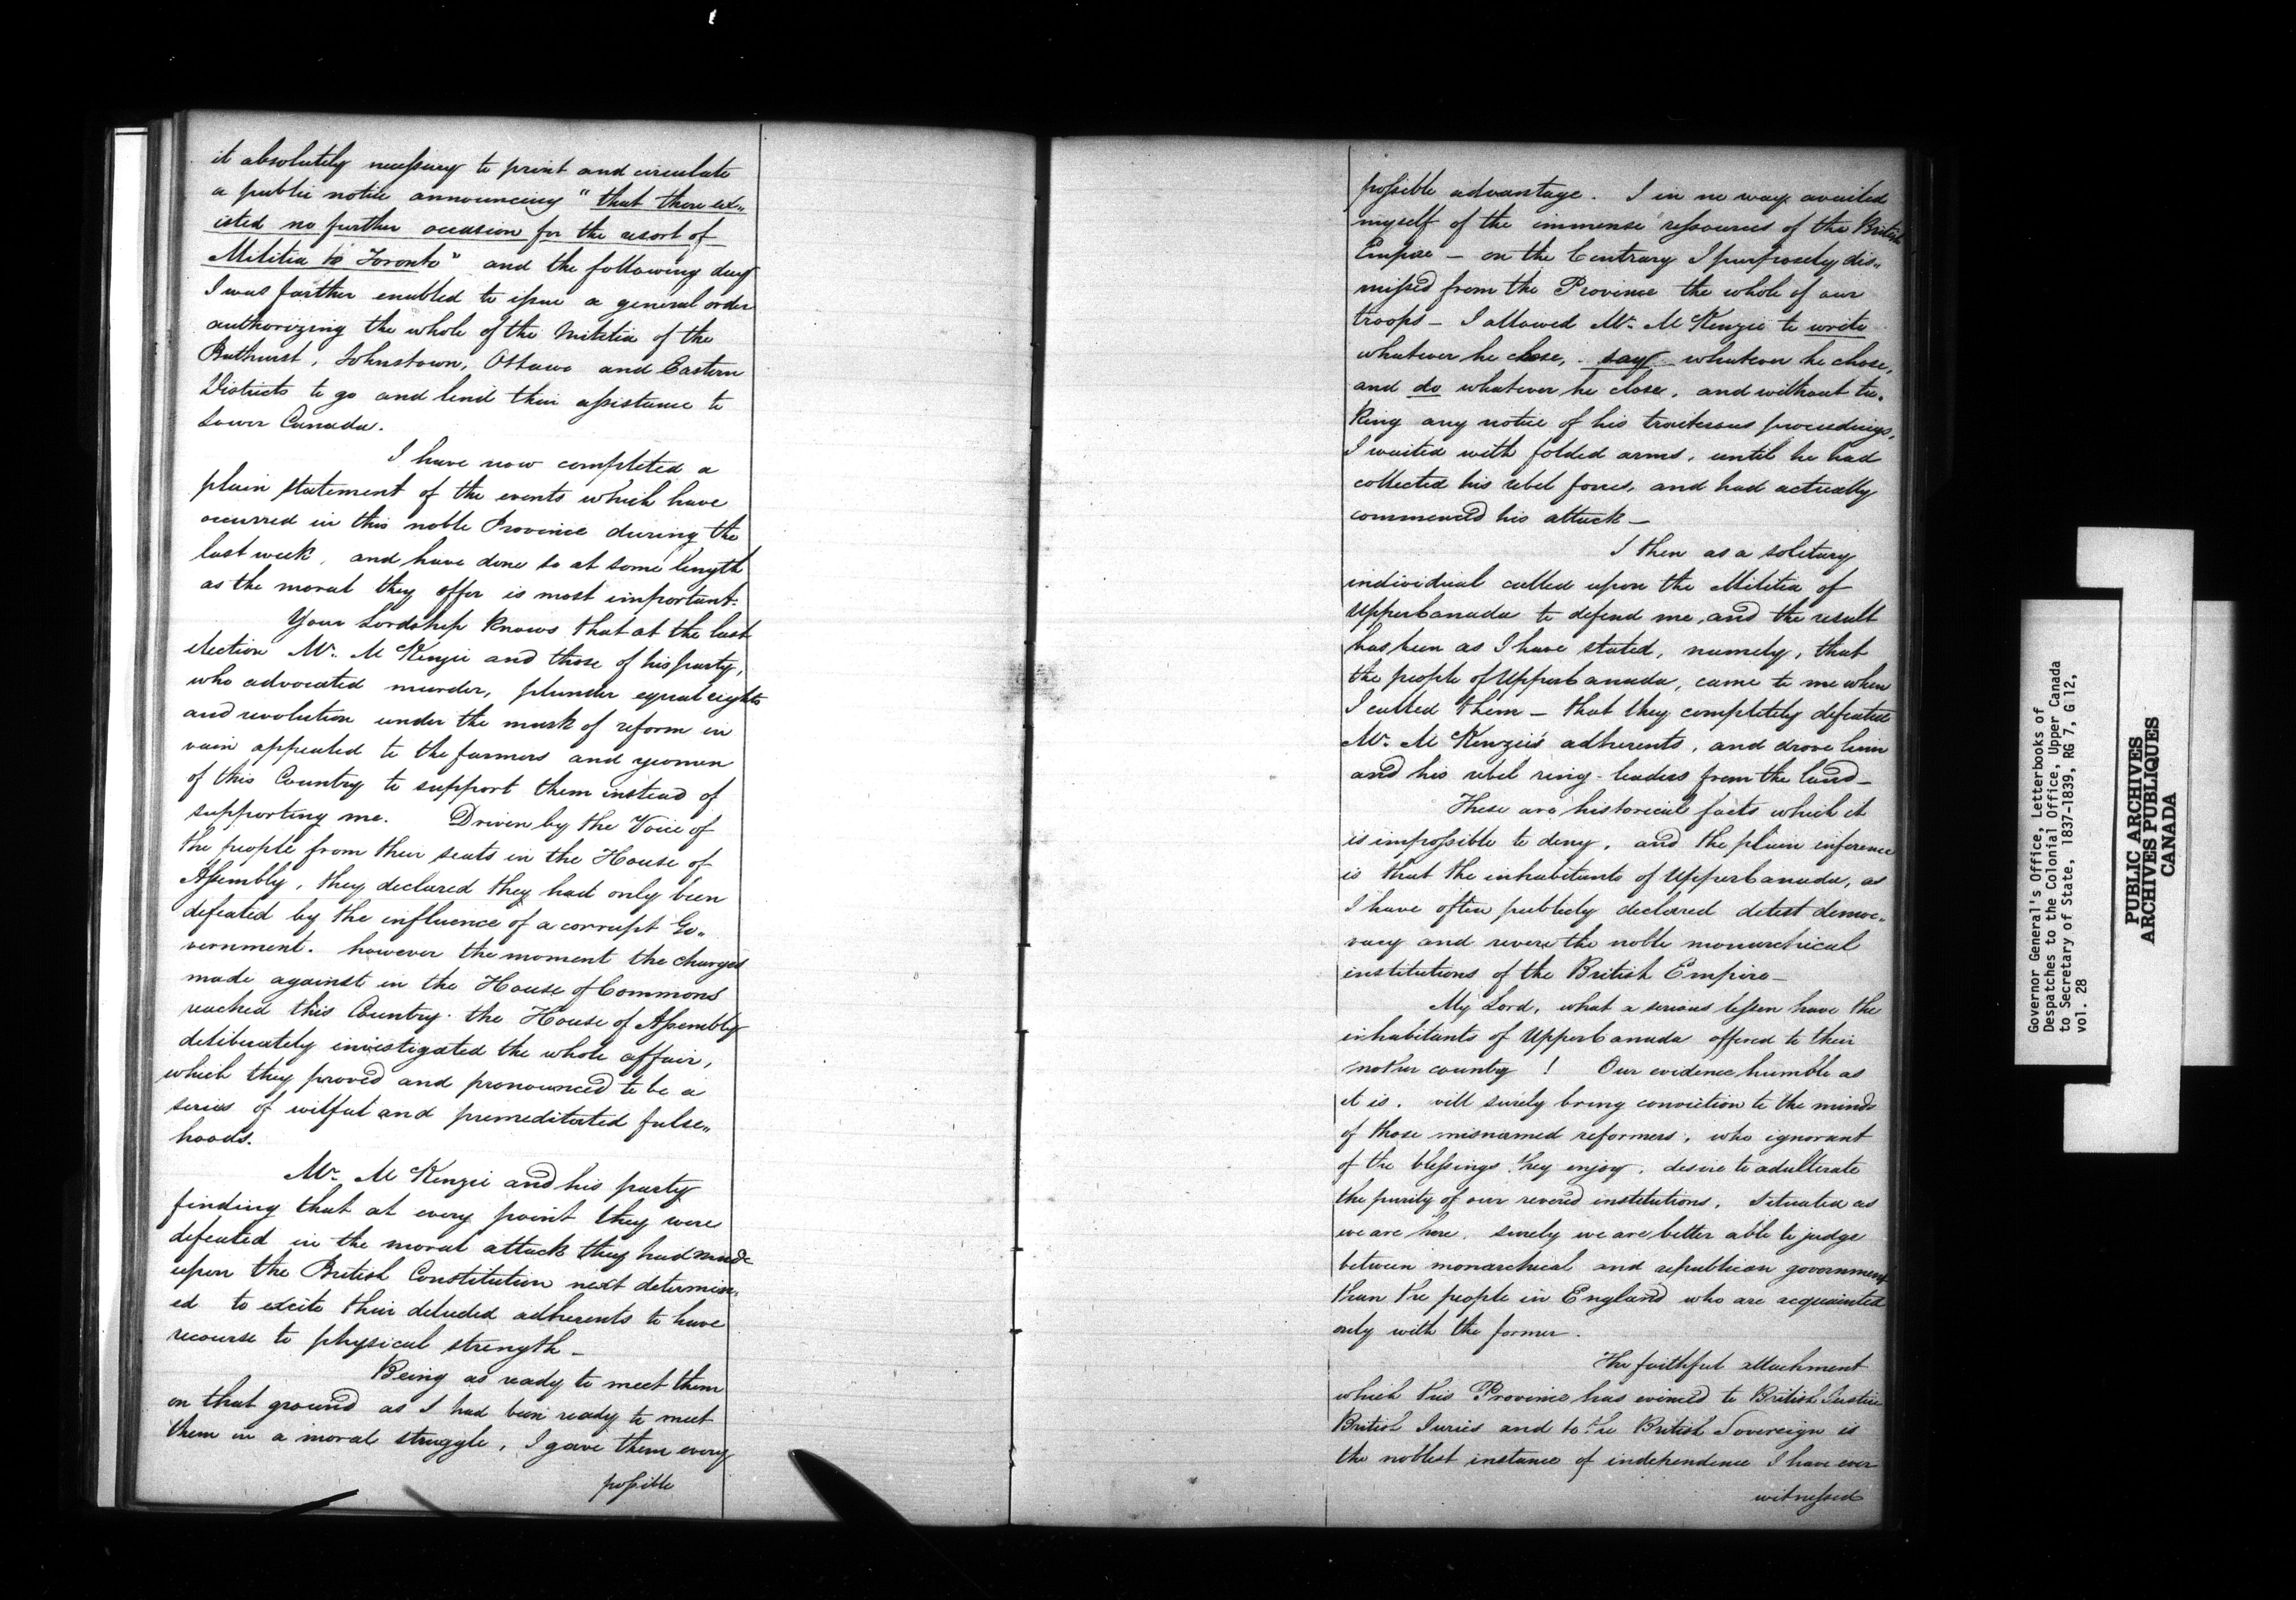 it absolutely necessary to print and circulate
a public notice announcing "that there ex„
isted no further occasion for the resort of
Militia to Toronto" and the following day
I was farther enabled to issue a general order
authorizing the whole of the Militia of the
Bathurst, Johnstown, Ottawa and Eastern
Districts to go and lend their assistance to
Lower Canada.
I have now completed a
plain statement of the events which have
occurred in this noble Province during the
last week, and have done so at some length
as the moral they offer is most important.
Your Lordship knows that at the last
election Mr. McKenzie and those of his party,
who advocated murder, plunder equal rights
and revolution under the mask of reform in
vain appealed to the farmers and yeomen
of this Country to support them instead of
supporting me. Driven by the Voice of
the people from their seats in the House of
Assembly, they declared they had only been
defeated by the influence of a corrupt Go„
vernment. however the moment the charges
made against in the House of Commons
reached this Country. the House of Assembly
deliberately investigated the whole affair,
which they proved and pronounced to be a
series of wilful and premeditated false„
hoods.
Mr. McKenzie and his party
finding that at every point they were
defeated in the moral attack they had made
upon the British Constitution next determin„
ed to excite their deluded adherents to have
recourse to physical strength –
Being as ready to meet them
on that ground as I had been ready to meet
them in a moral struggle, I gave them every
possible
possible advantage. I in no way availed
myself of the immense ressources of the British
Empire – on the Contrary I purposely dis„
missed from the Province the whole of our
troops – I allowed Mr. McKenzie to write
whatever he chose, say whatever he chose,
and do whatever he chose, and without ta„
king any notice of his traiterous proceedings,
I waited with folded arms, until he had
collected his rebel forces, and had actually
commenced his attack –
I then as a solitary
individual called upon the Militia of
Upper Canada to defend me, and the result
has been as I have stated, namely, that
the people of Upper Canada, came to me when
I called them – that they completely defeated
Mr. McKenzie's adherents, and drove him
and his rebel ring-leaders from the land –
These are historical facts which it
is impossible to deny, and the plain inference
is that the inhabitants of Upper Canada, as
I have often publicly declared detest democ„
racy and revere the noble monarchical
institutions of the British Empire –
My Lord, what a serious lesson have the
inhabitants of Upper Canada offered to their
mother country ! Our evidence humble as
it is, will surely bring conviction to the minds
of those misnamed reformers, who ignorant
of the blessings they enjoy, desire to adulterate
the purity of our revered institutions. Situated as
we are here, surely we are better able to judge
between monarchical and republican government
than the people in England who are acquainted
only with the former.
The faithful attachment
which this Province has evinced to British Justice
British Juries and to the British Sovereign is
the noblest instance of independence I have ever
witnessed
Governor General's Office, Letterbooks of
Despatches to the Colonial Office, Upper Canada
to Secretary of State, 1837-1839, RG 7, G 12,
vol. 28
PUBLIC ARCHIVES
ARCHIVES PUBLIQUES
CANADA